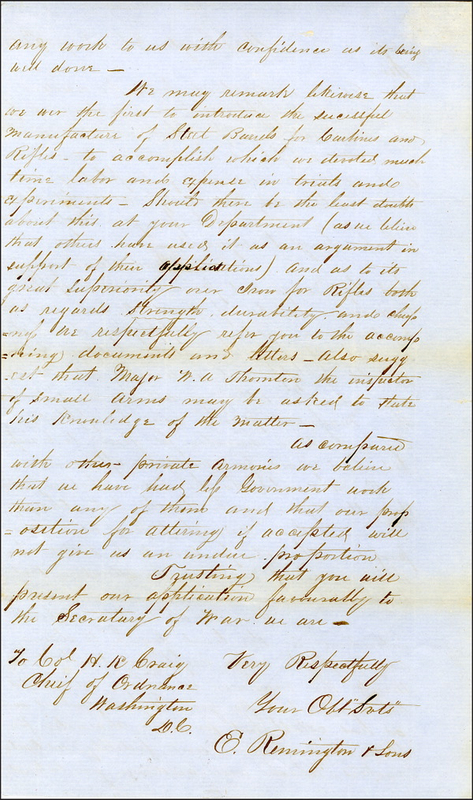 any work to us with confidence as its being
well done —
We may remark likewise that
we wer the first to introduce the sucessful
Manufacture of Steel Barrels for Carbines and
Rifles – to accomplish which we devoted much
time labor and expense in trials and
experiments – Should there be the least doubt
about this at your Department (as we believe
that others have used it as an argument in
support of their applications) and as to its
great Superiority over Iron for Rifles both
as regards Strength, durability and
we respectfully refer you to the accomp
=
documents and letters – also sugg
-est that Major W. A Thornton the inspector
of small arms may be asked to state
his knowledge of the Matter –
As compared
with other private armories we believe
that we have had less Government work
than any of them and that our prop
=osition for altering if accepted will
not give us an undue proportion
Trusting that you will
present our application favourably to
the Secretary of War we are –
To Col H. K Craig
Chief of Ordnance
Washington
D.C.
Very Respectfully
Your Obt "Svts"
E. Remington & Sons